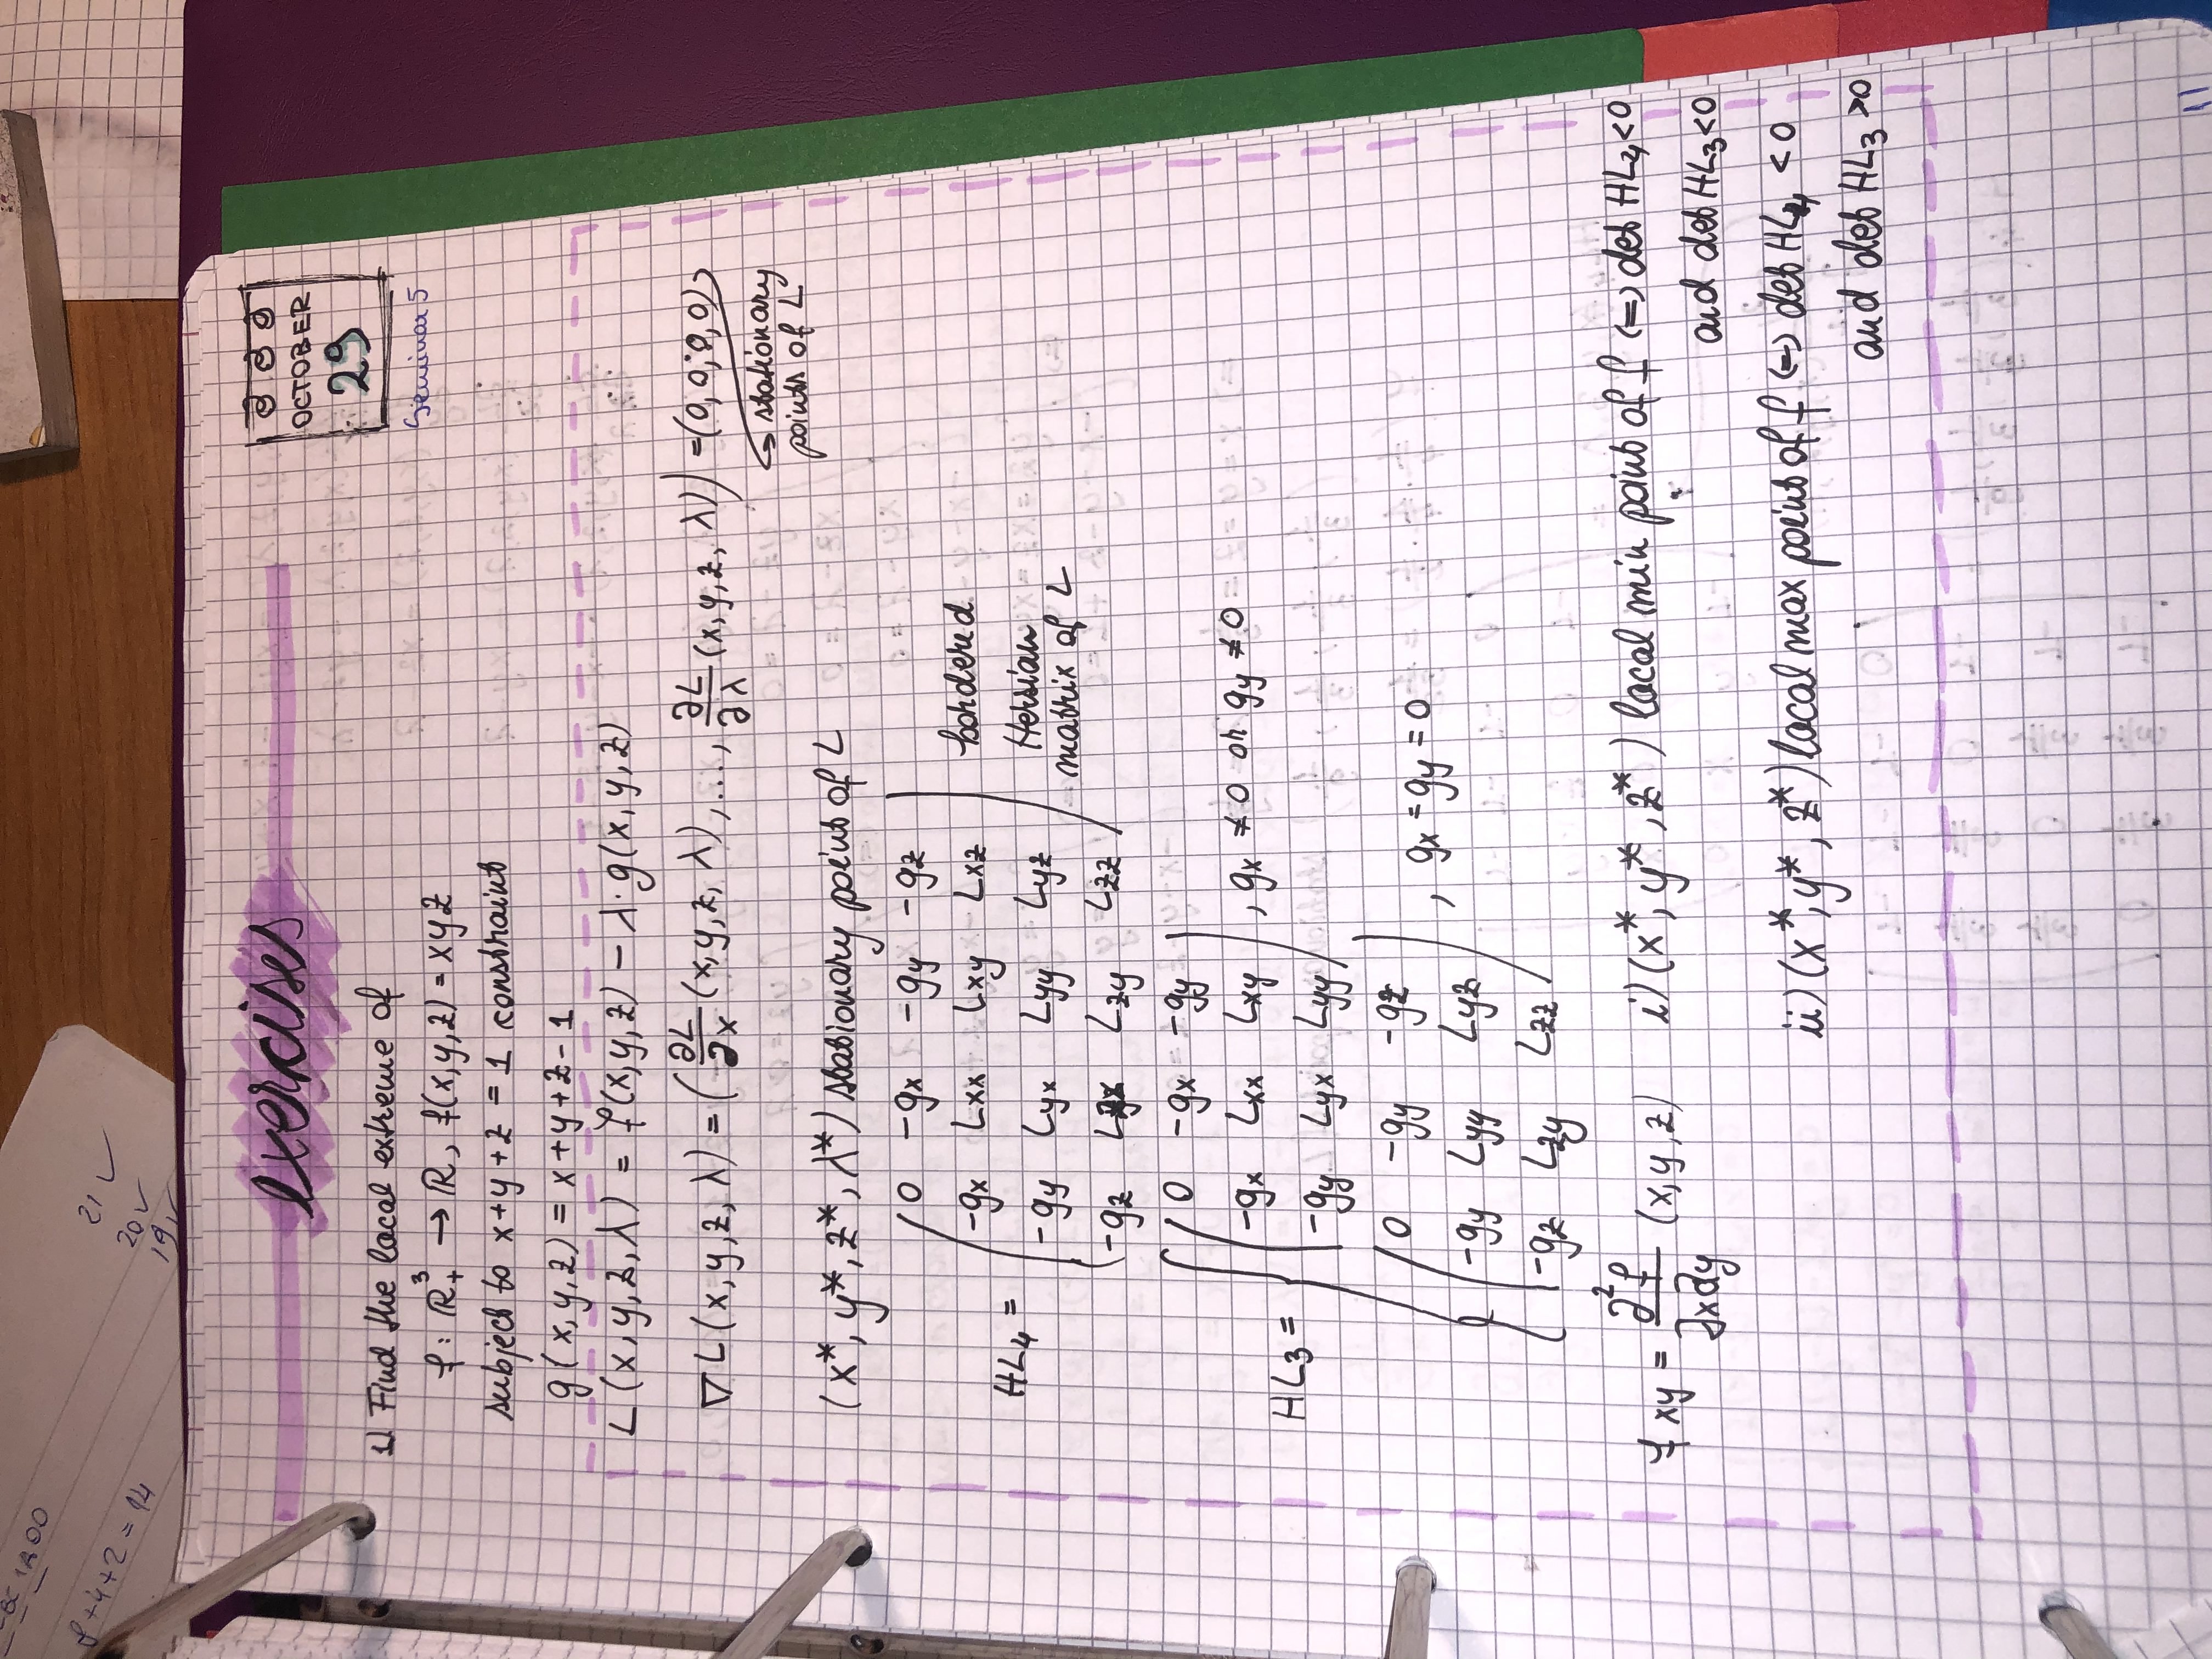 1200
8+4+2=14
21 ✓
20 ✓
19 ✓
exercises
OCTOBER
29
Seminar 5
1) Find the local extreme of
f: ℝ₊³ → ℝ, f(x,y,z) = xyz
subject to x+y+z = 1 constraint
g(x,y,z) = x+y+z-1
L(x,y,z,λ) = f(x,y,z) - λ·g(x,y,z)
∇L(x,y,z,λ) = (∂L/∂x (x,y,z,λ), ..., ∂L/∂λ (x,y,z,λ)) = (0,0,0,0)
↪ stationary
points of L
(x*, y*, z*, λ*) stationary point of L
0 -gx -gy -gz
-gx Lxx Lxy Lxz
bordered
HL₄ =
-gy Lyx Lyy Lyz
Hessian
matrix of L
-gz Lzx Lzy Lzz
0 -gx -gy
-gx Lxx Lxy , gx ≠ 0 or gy ≠ 0
HL₃ =
-gy Lyx Lyy
0 -gy -gz
, gx = gy = 0
-gy Lyy Lyz
-gz Lzy Lzz
fxy = ∂²f/∂x∂y (x,y,z) i) (x*, y*, z*) local min point of f ⟺ det HL₄ < 0
and det HL₃ < 0
ii) (x*, y*, z*) local max point of f ⟺ det HL₄ < 0
and det HL₃ > 0
11